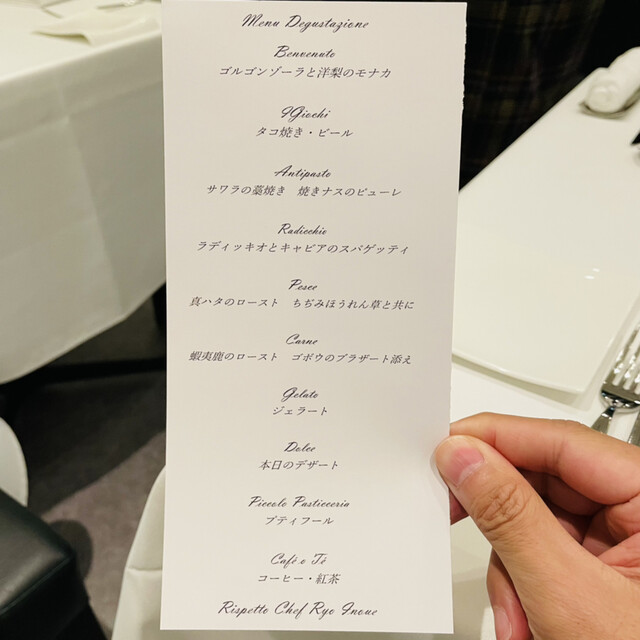 Menu Degustazione
Benvenuto
ゴルゴンゾーラと洋梨のモナカ
I Giochi
タコ焼き・ビール
Antipasto
サワラの藁焼き 焼きナスのピューレ
Radicchio
ラディッキオとキャビアのスパゲッティ
Pesce
真ハタのロースト ちぢみほうれん草と共に
Carne
蝦夷鹿のロースト ゴボウのブラザート添え
Gelato
ジェラート
Dolce
本日のデザート
Piccolo Pasticceria
プティフール
Café o Té
コーヒー・紅茶
Rispetto Chef Ryo Inoue